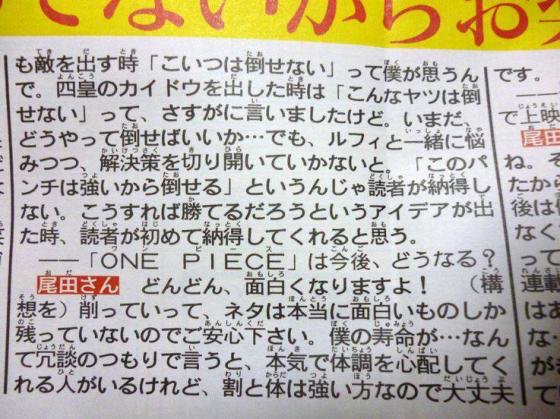 てないからお
も敵を出す時「こいつは倒せない」って僕が思うん
で。四皇のカイドウを出した時は「こんなヤツは倒
せない」って、さすがに言いましたけど。いまだ、
どうやって倒せばいいか…でも、ルフィと一緒に悩
みつつ、解決策を切り開いていかないと。「このパ
ンチは強いから倒せる」というんじゃ読者が納得し
ない。こうすれば勝てるだろうというアイデアが出
た時、読者が初めて納得してくれると思う。
――「ONE PIECE」は今後、どうなる?
尾田さん どんどん、面白くなりますよ! (構
想を)削っていって、ネタは本当に面白いものしか
残っていないのでご安心下さい。僕の寿命が…なん
て冗談のつもりで言うと、本気で体調を心配してく
れる人がいるけれど、割と体は強い方なので大丈夫
です。
で上映
尾田
ね。そ
たから
後は
なく
って
連載
は